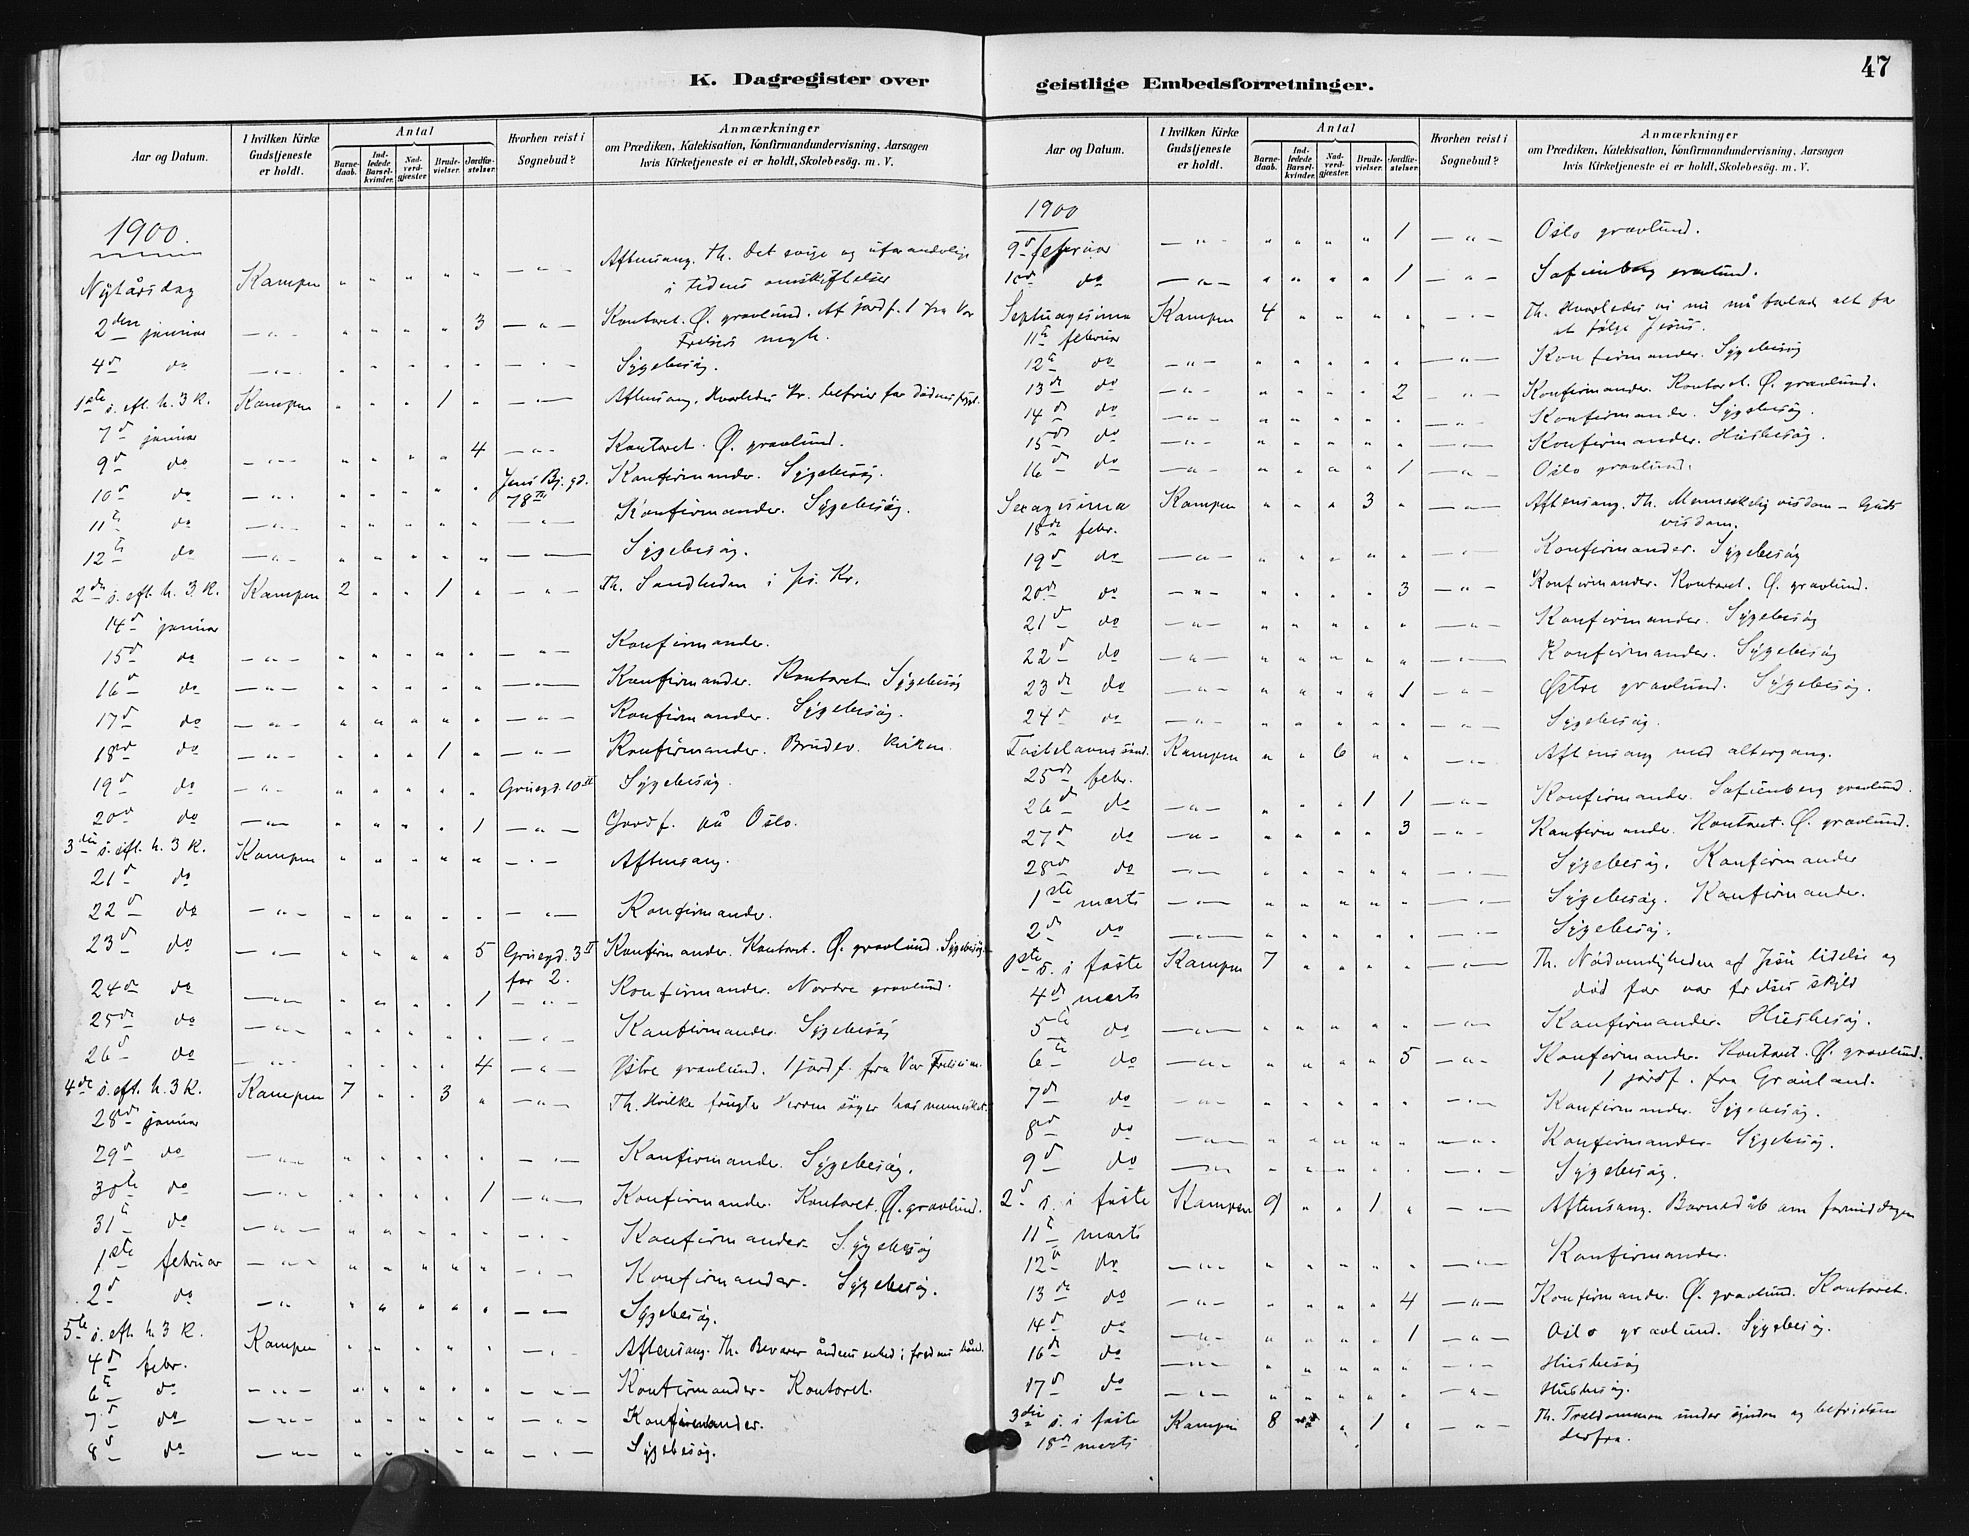 K. Dagregister over
Aar og Datum.
I hvilken Kirke Gudstjeneste er holdt.
Antal
Barnedaab.
Indledede Barselkvinder.
Nadverdgjæster.
Brudevielser.
Jordfæstelser.
Hvorhen reist i Sognebud?
Anmærkninger
om Prædiken, Katekisation, Konfirmandundervisning, Aarsagen
hvis Kirketjeneste ei er holdt, Skolebesög. m. V.
1900.
Nytårsdag Kampen " " " " " — " — Aftensang. Th. Det evige og uforanderlige
i tidens omskiftelser
2den januar — " — " " " " 3 — " — Kontoret. Ø. gravlund. Af jordf. 1 fra Vor
Frelsers mgh.
4d do — " — " " " " " — " — Sygebesög.
1ste s. eft. h. 3 K. Kampen " " " 1 " — " — Aftensang. Hvorledes Kr. befrier for dödens frygt.
7d januar
9d do — " — " " " " 4 — " — Kontoret. Ø. gravlund.
10d do — " — " " " " " Jens Bj. gd. 78 Konfirmander. Sygebesög.
11te do — " — " " " " " — " — Konfirmander. Sygebesög.
12te do — " — " " " " " — " — Sygebesög.
2den s. eft. h. 3 K. Kampen 2 " " 1 " — " — Th. Sandheden i Jes. Kr.
14d januar
15d do — " — " " " " " — " — Konfirmander.
16d do — " — " " " " " — " — Konfirmander. Kontoret. Sygebesög
17d do — " — " " " " " — " — Konfirmander. Sygebesög.
18de do — " — " " " 1 " — " — Konfirmander. Brudev. kirken.
19d do — " — " " " " " Gruegd. 10 Sygebesög.
20d do — " — " " " " 1 — " — Jordf. på Oslo.
3die s. eft. h. 3 K. Kampen " " " " " — " — Aftensang.
21d do
22d do — " — " " " " " — " — Konfirmander.
23d do — " — " " " " 5 Gruegd. 3 Konfirmander. Kontoret. Ø. gravlund. Sygebesög.
for 2.
24de do — " — " " " " 1 — " — Konfirmander. Nordre gravlund.
25de do — " — " " " " " — " — Konfirmander. Sygebesög
26d do — " — " " " " 4 — " — Østre gravlund. 1 jordf. fra Vor Frelsers m.
4de s. eft. h. 3 K. Kampen 7 " " 3 " — " — Th. Hvilke frugter Herren söger hos mennesket.
28de januar
29d do — " — " " " " " — " — Konfirmander. Sygebesög.
30te do — " — " " " " 1 — " — Konfirmander. Kontoret. Ø. gravlund.
31te do — " — " " " " " — " — Konfirmander. Sygebesög
1ste februar — " — " " " " " — " — Konfirmander. Sygebesög.
2d do — " " " " " " — " — Sygebesög.
5te s. eft. h. 3 K. Kampen " " " " " — " — Aftensang. Th. Bevarer åndens enhed i fredens bånd.
4d febr.
6te do — " — " " " " " — " — Konfirmander. Kontoret.
7d do — " — " " " " " — " — Konfirmander.
8d do — " — " " " " " — " — Sygebesög.
47
geistlige Embedsforretninger.
Aar og Datum.
I hvilken Kirke Gudstjeneste er holdt.
Antal
Barnedaab.
Indledede Barselkvinder.
Nadverdgjæster.
Brudevielser.
Jordfæstelser.
Hvorhen reist i Sognebud?
Anmærkninger
om Prædiken, Katekisation, Konfirmandundervisning, Aarsagen
hvis Kirketjeneste ei er holdt, Skolebesög. m. V.
1900
9d februar — " — " " " " 1 — " — Oslo gravlund.
10d do — " — " " " " 1 — " — Sofienberg gravlund.
Septuagesima Kampen 4 " " " " — " — Th. Hvorledes vi nu må forlade alt for
at følge Jesus.
11te februar
12te do — " — " " " " " — " — Konfirmander. Sygebesög
13de do — " — " " " " 2 — " — Konfirmander. Kontoret. Ø. gravlund.
14d do — " — " " " " " — " — Konfirmander. Sygebesög.
15de do — " — " " " " " — " — Konfirmander. Husbesög.
16d do — " — " " " " 1 — " — Oslo gravlund.
Sexagesima Kampen " " " 3 " — " — Aftensang. Th. Menneskelig visdom – Guds
visdom.
18de febr.
19d do — " — " " " " " — " — Konfirmander. Sygebesög
20d do — " — " " " " 3 — " — Konfirmander. Kontoret. Ø. gravlund.
21d do — " — " " " " " — " — Konfirmander. Sygebesög
22d do — " — " " " " " — " — Konfirmander. Sygebesög
23de do — " — " " " " 1 — " — Østre gravlund. Sygebesög.
24d do — " — " " " " " — " — Sygebesög.
Fastelavnssönd. Kampen " " 6 " " — " — Aftensang med altergang.
25de febr.
26d do — " — " " " 1 1 — " — Konfirmander. Sofienberg gravlund.
27d do — " — " " " " 3 — " — Konfirmander. Kontoret. Ø. gravlund.
28de do — " — " " " " " — " — Sygebesög. Konfirmander
1ste marts — " — " " " " " — " — Sygebesög. Konfirmander.
2d do — " — " " " " " — " — Sygebesög.
1ste s. i faste Kampen 7 " " " " — " — Th. Nödvendigheden af Jesu lidelse og
död for vor frelses skyld
4de marts
5te do — " — " " " " " — " — Konfirmander. Husbesög.
6te do — " — " " " " 5 — " — Konfirmander. Kontoret. Ø. gravlund.
1 jordf. fra Grönland.
7de do — " — " " " " " — " — Konfirmander. Sygebesög.
8de do — " — " " " " " — " — Konfirmander. Sygebesög.
9d do — " — " " " " " — " — Sygebesög.
2d s. i faste Kampen 9 " " 1 " — " — Aftensang. Barnedåb om formiddagen
11te marts
12te do — " — " " " " " — " — Konfirmander.
13de do — " — " " " " 4 — " — Konfirmander. Ø. gravlund. Kontoret.
14de do — " — " " " " 1 — " — Oslo gravlund. Sygebesög.
16de do — " — " " " " " — " — Husbesög
17d do — " — " " " " " — " — Husbesög.
3die s. i faste Kampen 8 " " 1 " — " — Th. Trældommen under synden og befrielsen
derfra.
18de marts